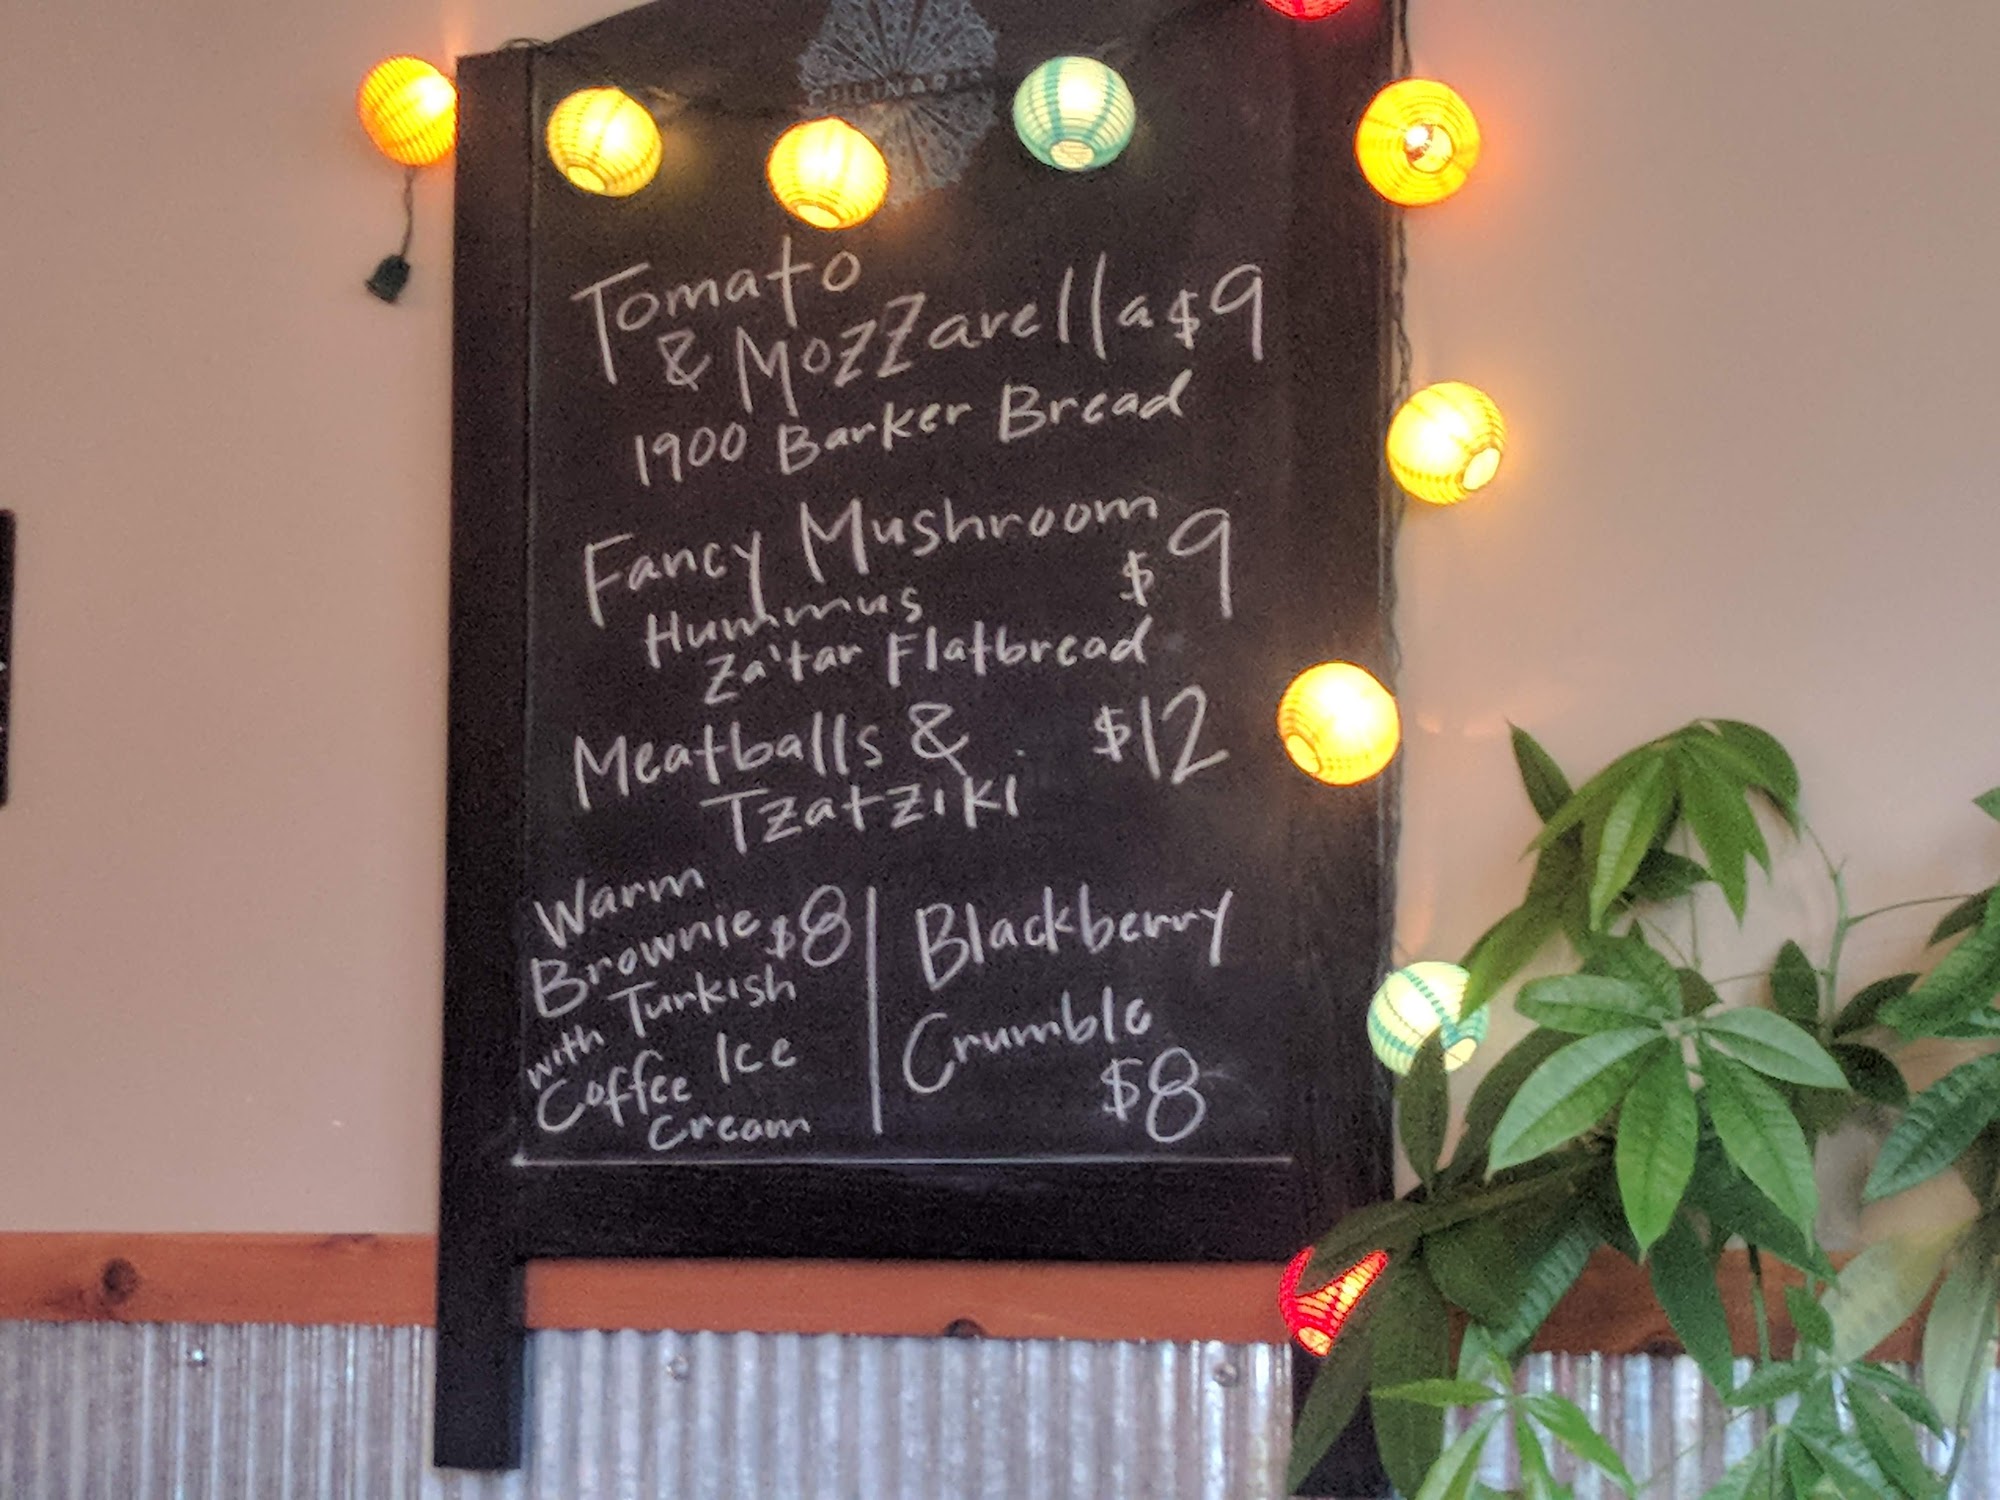 CULINARIA
Tomato
& Mozzarella $9
1900 Barker Bread
Fancy Mushroom
Hummus $9
Za'tar Flatbread
Meatballs & $12
Tzatziki
Warm
Brownie $8
with Turkish
Coffee Ice
Cream
Blackberry
Crumble
$8